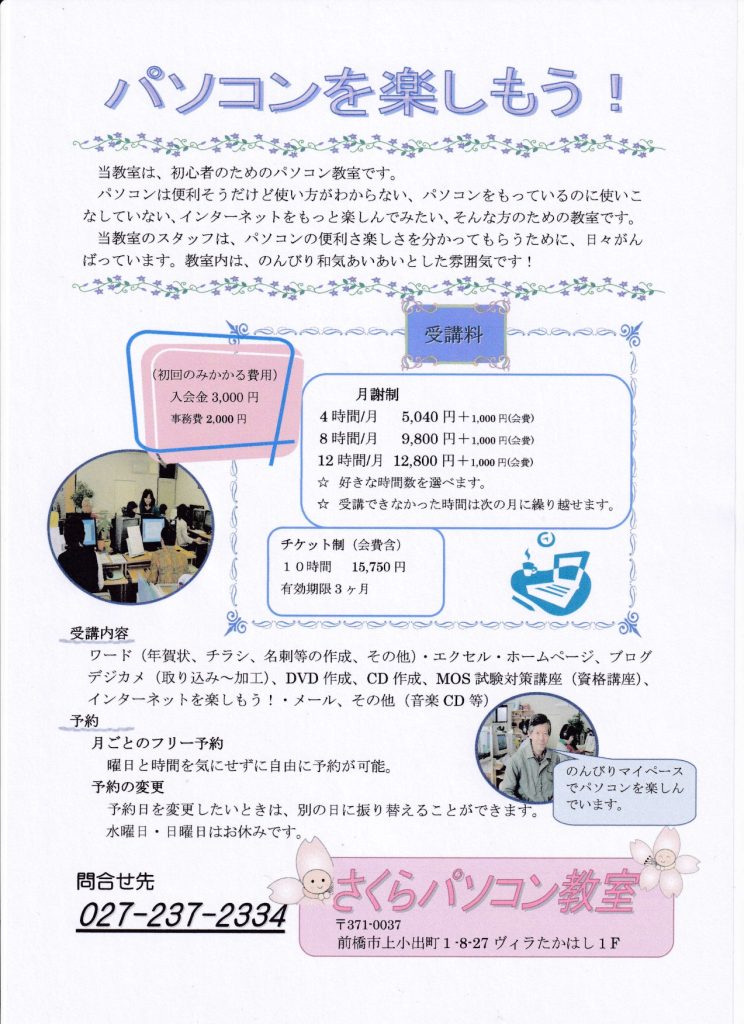 パソコンを楽しもう！
当教室は、初心者のためのパソコン教室です。
パソコンは便利そうだけど使い方がわからない、パソコンをもっているのに使いこ
なしていない、インターネットをもっと楽しんでみたい、そんな方のための教室です。
当教室のスタッフは、パソコンの便利さ楽しさを分かってもらうために、日々がん
ばっています。教室内は、のんびり和気あいあいとした雰囲気です！
受講料
（初回のみかかる費用）
入会金 3,000 円
事務費 2,000 円
月謝制
4 時間/月 5,040 円＋1,000 円(会費)
8 時間/月 9,800 円＋1,000 円(会費)
12 時間/月 12,800 円＋1,000 円(会費)
☆ 好きな時間数を選べます。
☆ 受講できなかった時間は次の月に繰り越せます。
チケット制（会費含）
１０時間 15,750 円
有効期限３ヶ月
受講内容
ワード（年賀状、チラシ、名刺等の作成、その他）・エクセル・ホームページ、ブログ
デジカメ（取り込み～加工）、DVD 作成、CD 作成、MOS 試験対策講座（資格講座）、
インターネットを楽しもう！・メール、その他（音楽 CD 等）
予約
月ごとのフリー予約
曜日と時間を気にせずに自由に予約が可能。
予約の変更
予約日を変更したいときは、別の日に振り替えることができます。
水曜日・日曜日はお休みです。
のんびりマイペース
でパソコンを楽しん
でいます。
問合せ先
027-237-2334
さくらパソコン教室
〒371-0037
前橋市上小出町１-8-27 ヴィラたかはし１F